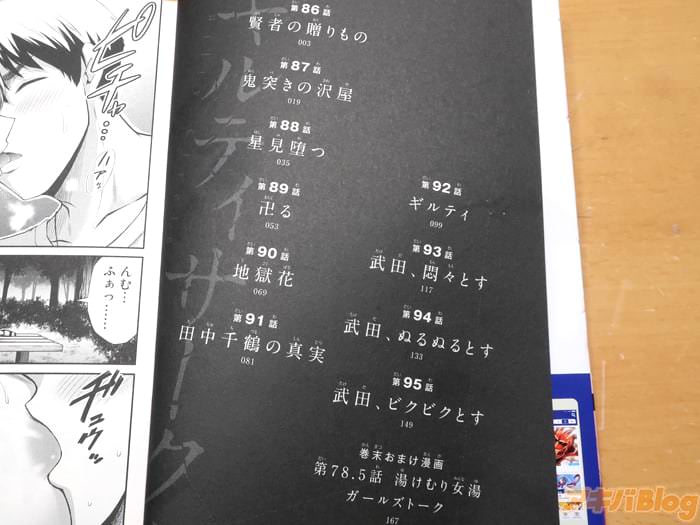 ギルティサークル
第86話
賢者の贈りもの
003
第87話
鬼突きの沢屋
019
第88話
星見堕つ
035
第89話
卍る
053
第90話
地獄花
069
第91話
田中千鶴の真実
081
第92話
ギルティ
099
第93話
武田、悶々とす
117
第94話
武田、ぬるぬるとす
133
第95話
武田、ビクビクとす
149
巻末おまけ漫画
第78.5話 湯けむり女湯
ガールズトーク
167
ピチャ…
ハアッ
んむ…
ふぁっ……
ギュウッ
アキバBlog